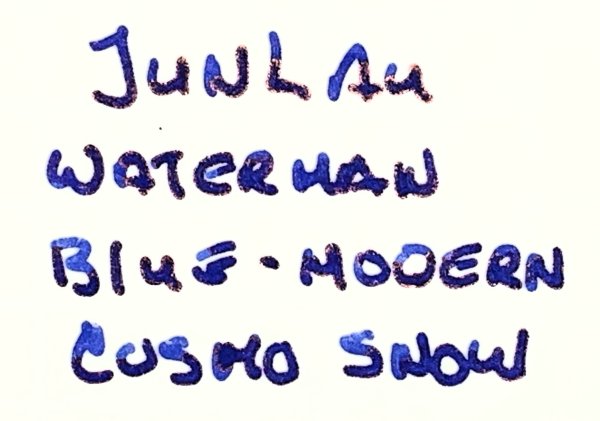 JUNLAU
WATERMAN
BLUE-MODERN
COSMO SNOW